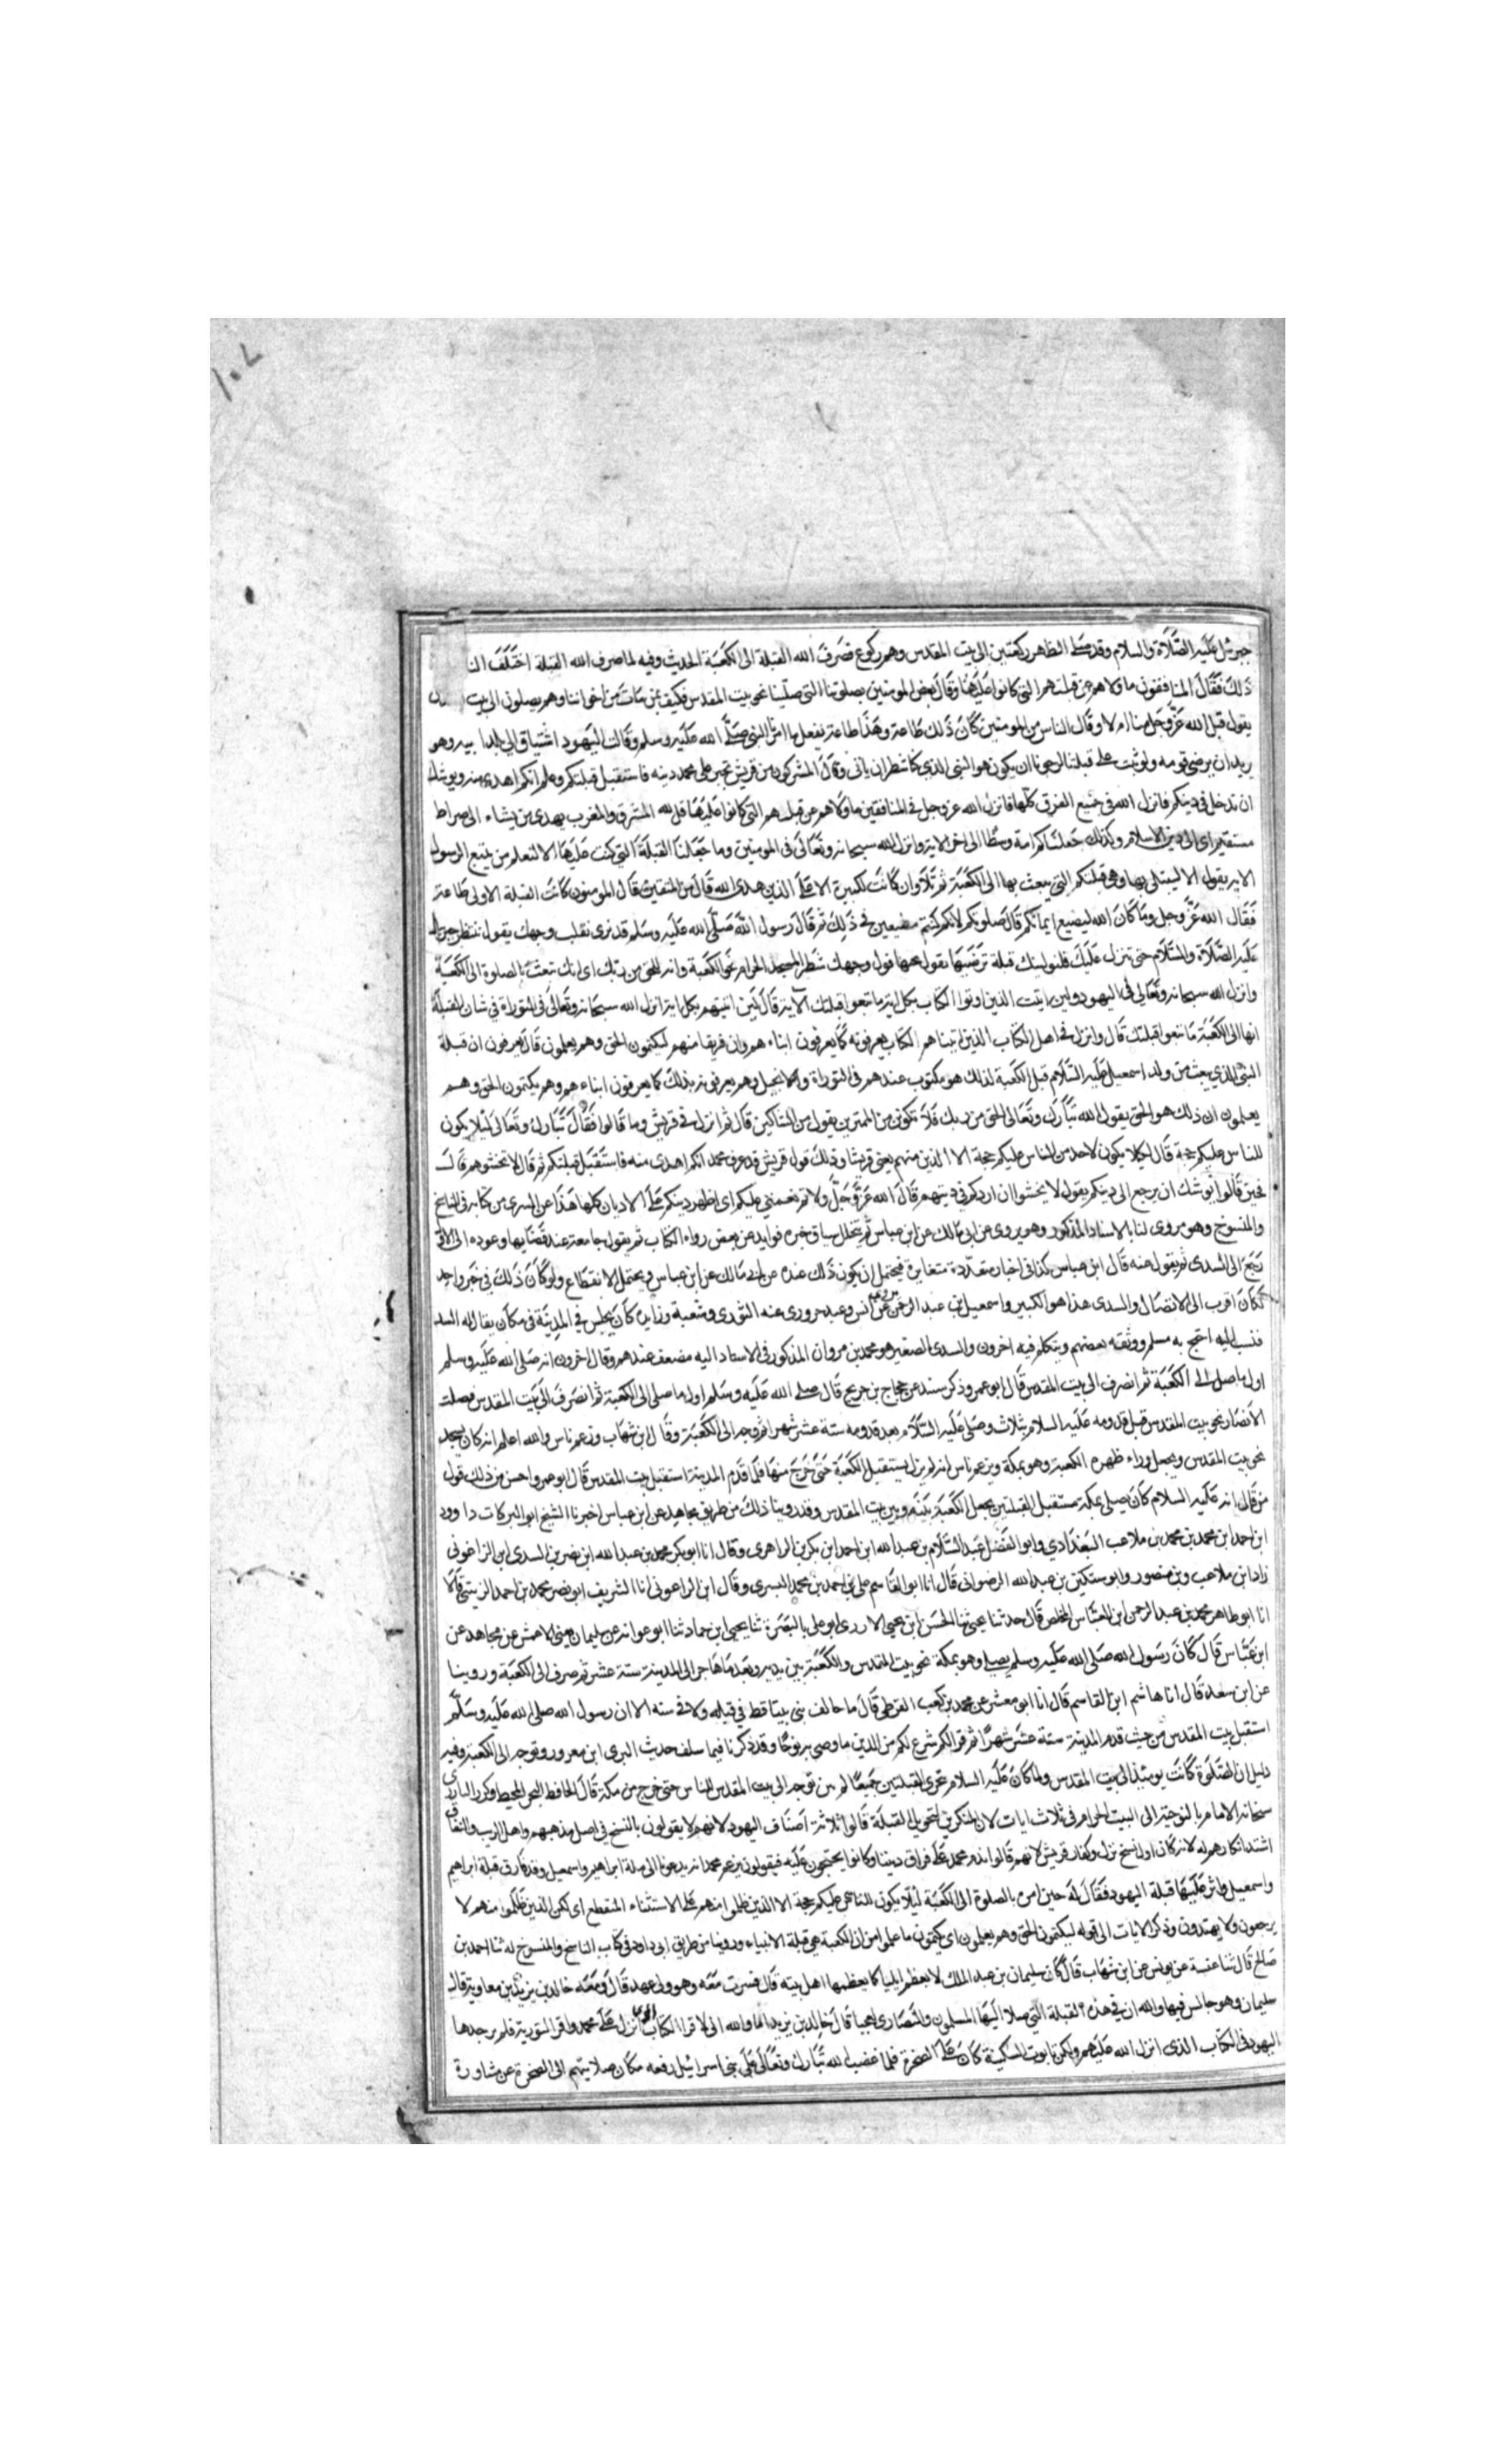 جبرئيل عليه الصلاة والسلام وقد صلى الظهر ركعتين الى بيت المقدس وهم ركوع فصرف الله القبلة الى الكعبة الحديث وفيه لما صرف الله القبلة اختلف الناس
ذلك فقال المنافقون ما ولاهم عن قبلتهم التي كانوا عليها وقال بعض المومنين بصلوتنا التي صلينا نحو بيت المقدس فكيف بمن مات من اخواننا وهم يصلون الى بيت
يقول قبل الله عز وجل منا ام لا وقال الناس من المومنين كان ذلك طاعة وهذا طاعة نفعل ما امر النبي صلى الله عليه وسلم وقالت اليهود اشتياق الى بلد ابيه وهو
يريد ان يرضي قومه ولو ثبت على قبلتنا لرجونا ان يكون هو النبي الذي كنا ننتظر ان ياتي وقال المشركون من قريش تحير على محمد دينه فاستقبل قبلتكم وعلم انكم اهدى منه ويوشك
ان تدخل في دينكم فانزل الله في جميع الفرق كلها فانزل الله عز وجل في المنافقين ما ولاهم عن قبلتهم التي كانوا عليها قل لله المشرق والمغرب يهدي من يشاء الى صراط
مستقيم اى الى دين الاسلام وكذلك جعلناكم امة وسطا الى اخر الاية وانزل الله سبحانه وتعالى في المومنين وما جعلنا القبلة التي كنت عليها الا لنعلم من يتبع الرسول
الاية يقول الا ليبتلى بها وهي قبلتكم التي يبعث بها الى الكعبة ثم تلا وان كانت لكبيرة الا على الذين هدى الله قال من المتقين قال المومنون كانت القبلة الاولى طاعة
فقال الله عز وجل وما كان الله ليضيع ايمانكم قال صلوتكم لانكم كنتم مطيعين في ذلك ثم قال رسول الله صلى الله عليه وسلم قد نرى تقلب وجهك يقول تنتظر جبريل
عليه الصلاة والسلام حتى تنزل عليك فلنولينك قبلة ترضيها يقول تحبها فول وجهك شطر المسجد الحرام نحو الكعبة وانه للحق من ربك اى انك تبعث بالصلوة الى الكعبة
وانزل الله سبحانه وتعالى في اليهود ولين اتيت الذين اوتوا الكتاب بكل اية ما تبعوا قبلتك الاية قال لئن اتيتهم بكل اية انزل الله سبحانه وتعالى في التوراة في شان القبلة
انها الى الكعبة ما تبعوا قبلتك قال وانزل في اهل الكتاب الذين اتيناهم الكتاب يعرفونه كما يعرفون ابناءهم وان فريقا منهم ليكتمون الحق وهم يعلمون قال يعرفون ان قبلة
النبي الذي يبعث من ولد اسمعيل عليه السلام قبل الكعبة لذلك هو مكتوب عندهم في التوراة والانجيل وهم يعرفونه بذلك كما يعرفون ابناءهم وهم يكتمون الحق وهم
يعلمون ان ذلك هو الحق يقول الله تبارك وتعالى الحق من ربك فلا تكونن من الممترين يقول من الشاكين قال ثم انزل في قريش وما قالوا فقال تبارك وتعالى ليلا يكون
للناس عليكم حجة قال لكيلا يكون لاحد من الناس عليكم حجة الا الذين منهم يعني قريشا وذلك قول قريش قد عرف محمد انكم اهدى منه فاستقبل قبلتكم ثم قال لا تخشوهم قال
فحين قالوا يوشك ان يرجع الى دينكم يقول لا تخشوا ان اردكم في دينهم قال الله عز وجل ولاتم نعمتي عليكم اى اظهر دينكم على الاديان كلها هذا عن السدى من كتابه في الناسخ
والمنسوخ وهو مروى لنا بالاسناد المذكور وهو يروى عن ابى مالك عن ابن عباس ثم يتخلل سياق خبره فوايد عن بعض رواه الكتاب ثم يقول جامعه عند قضايها وعوده الى الاول
رجع الى السدى ثم يقول عنه قال ابن عباس كذا في اخبار متعددة متغايرة فيحتمل ان يكون ذلك عنده عن ابى مالك عن ابن عباس ويحتمل الانقطاع ولو كان ذلك في خبر واحد
لكان اقرب الى الاتصال والسدى هذا هو الكبير واسمعيل ابن عبد الرحمن يروى عن انس وعبد خير روى عنه الثوري وشعبة وزايدة كان يجلس في المدينة في مكان يقال له السد
فنسب اليه احتج به مسلم ووثقه بعضهم وتكلم فيه اخرون والسدى الصغير هو محمد بن مروان المذكور في الاسناد اليه مضعف عندهم وقال اخرون انه صلى الله عليه وسلم
اول ما صلى الى الكعبة ثم انصرف الى بيت المقدس قال ابو عمر وذكر سند عن حجاج بن جريج قال صلى الله عليه وسلم اول ما صلى الى الكعبة ثم انصرف الى بيت المقدس فصلت
الانصار نحو بيت المقدس قبل قدومه عليه السلام بثلاث وصلى عليه السلام بعد قدومه ستة عشر شهرا ثم وجه الى الكعبة وقال ابن شهاب وزعم ناس والله اعلم انه كان يسجد
نحو بيت المقدس ويجعل وراء ظهره الكعبة وهو بمكة ويزعم ناس انه لم يزل يستقبل الكعبة حتى خرج منها فلما قدم المدينة استقبل بيت المقدس قال ابو عمر واحسن من ذلك قول
من قال انه عليه السلام كان يصلي بمكة مستقبل القبلتين يجعل الكعبة بينه وبين بيت المقدس وقد روينا ذلك من طريق مجاهد عن ابن عباس اخبرنا الشيخ ابو البركات داوود
ابن احمد ابن محمد بن محمد بن ملاعب البغدادي وابو الفضل عبد السلام بن عبد الله ابن احمد ابن بكرين الزاهري وقال انا ابو بكر محمد بن عبد الله ابن نصر بن السدى ابن الزاغوني
زاد ابن ملاعب وبن منصور وابو ستكين بن عبد الله الرضواني قال انا ابو القاسم علي بن احمد بن محمد البسري وقال ابن الزاعوني انا الشريف ابو نصر محمد بن احمد الزينبي قالا
انا ابو طاهر محمد بن عبد الرحمن ابن العباس المخلص قال حدثنا يحيى ثنا الحسن ابن يحيى الازدى ابو علي بالبصرة ثنا يحيى ابن حماد ثنا ابو عوانه عن سليمان يعني الاعمش عن مجاهد عن
ابن عباس قال كان رسول الله صلى الله عليه وسلم يصلي وهو بمكة نحو بيت المقدس والكعبة بين يديه وبعد ما هاجر الى المدينة ستة عشر ثم صرف الى الكعبة وروينا
عن ابن سعد قال انا هاشم ابن القاسم قال انا ابو معشر عن محمد بن كعب القرظى قال ما خالف نبي بيتا قط في قبله ولا في سنه الا ان رسول الله صلى الله عليه وسلم
استقبل بيت المقدس من حيث قدم المدينة ستة عشر شهرا ثم قرا لكم شرع لكم من الدين ما وصى به نوحا وقد ذكرنا فيما سلف حديث البرى ابن معرور وتوجه الى الكعبة وفيه
دليل ان الصلوة كانت يومئذ الى بيت المقدس ولما كان عليه السلام يتحرى القبلتين جميعا لم يبن توجه الى بيت المقدس للناس حتى خرج من مكة قال الحافظ البحر المحيط وكرر البارى
سبحانه الامر بالتوجه الى البيت الحرام في ثلاث ايات لان المنكرين لتحويل القبلة قالوا ثلاثة اصناف اليهود لانهم لا يقولون بالنسخ في اصل مذهبهم واهل الريب والنفاق
اشتد انكارهم له لانه كان اول نسخ نزل وكفار قريش لانهم قالوا ندم محمد على فراق ديننا وكانوا يحتجون عليه فيقولون يزعم محمد انه يدعونا الى ملة ابراهيم واسمعيل وقد فارق قبلة ابراهيم
واسمعيل واثر عليها قبلة اليهود فقال له حين امره بالصلوة الى الكعبة ليلا يكون للناس عليكم حجة الا الذين ظلموا منهم على الاستثناء المنقطع اى لكن الذين ظلموا منهم لا
يرجعون ولا يهتدون وذكر الايات الى قوله ليكتمون الحق وهم يعلمون اى يكتمون ما علموا من ان الكعبة هي قبلة الانبياء وروينا من طريق ابى داود في كتاب الناسخ والمنسوخ له ثنا احمد بن
صالح قال ثنا عنبسة عن يونس عن ابن شهاب قال كان سليمان بن عبد الملك لا يعظم ايليا كما يعظمها اهل بيته قال فسرت معه وهو ولي عهد قال ومعه خالد بن يزيد بن معاوية قال
سليمان وهو جالس فيها والله ان في هذه القبلة التي صلا اليها المسلمون والنصارى لعجبا قال خالد بن يزيد اما والله اني لاقرا الكتاب الذي انزل على محمد واقرا التورية فلم يجدها
اليهود في الكتاب الذي انزل الله عليهم ولكن تابوت السكينة كان على الصخرة فلما غضب الله تبارك وتعالى على بني اسرائيل رفعه مكان صلاتهم الى الصخرة عن مشاورة